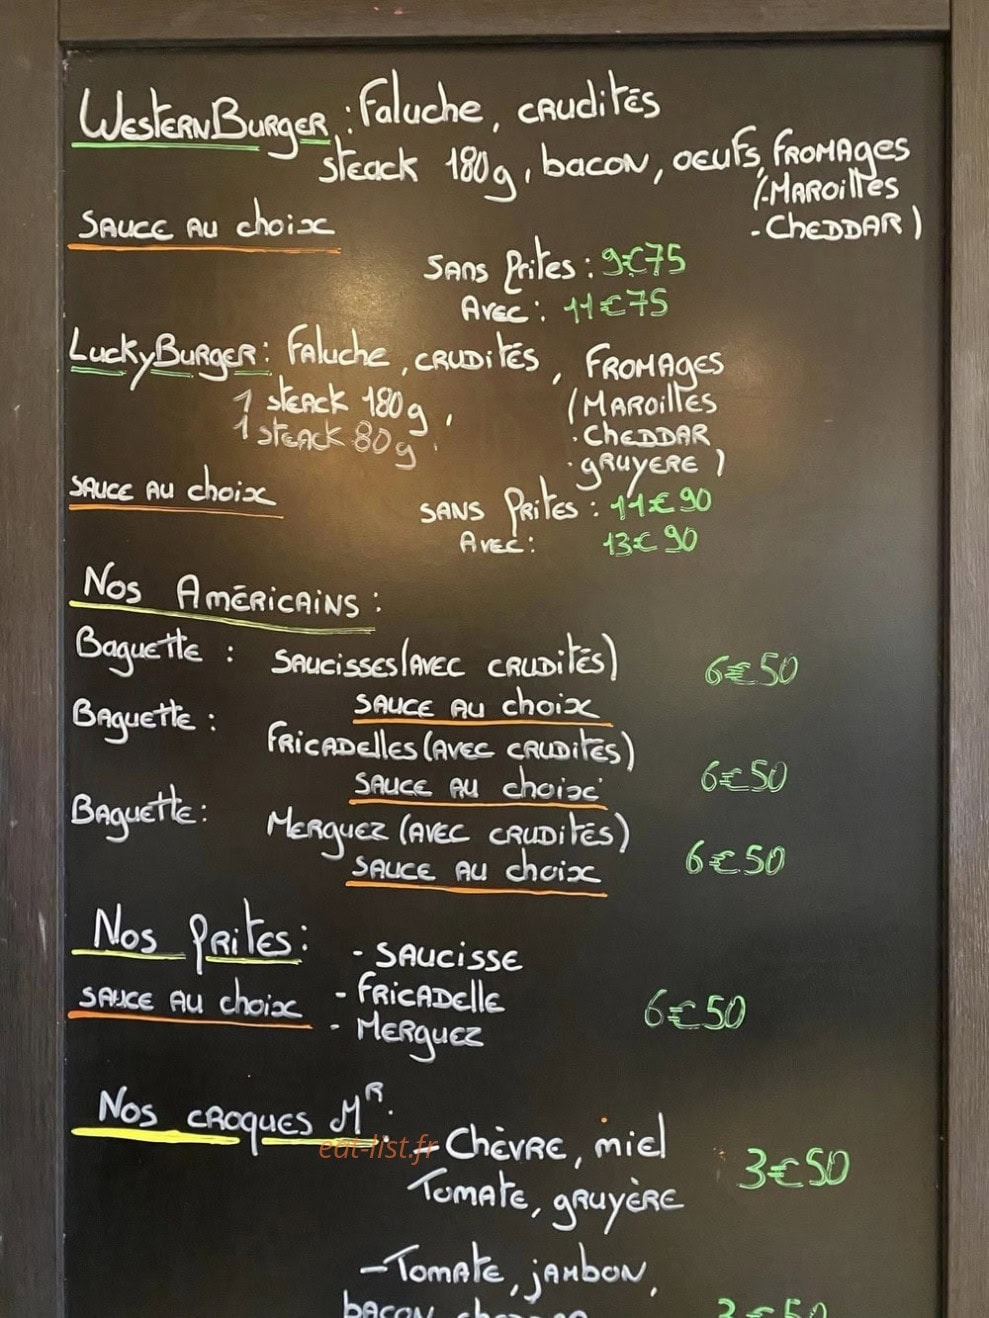 WesternBurger : Faluche, crudités
steack 180g, bacon, oeufs, fromages
(-Maroilles
- Cheddar)
Sauce au choix
Sans frites : 9€75
Avec : 11€75
LuckyBurger : Faluche, crudités, fromages
1 steack 180g, (Maroilles
1 steack 80g . Cheddar
. gruyere)
sauce au choix
sans frites : 11€90
Avec : 13€90
Nos Américains :
Baguette : saucisses (avec crudités) 6€50
sauce au choix
Baguette : fricadelles (avec crudités)
sauce au choix 6€50
Baguette : Merguez (avec crudités)
sauce au choix 6€50
Nos frites : - saucisse
sauce au choix - fricadelle 6€50
- Merguez
Nos croques Mr.
eat-list.fr
- Chèvre, miel 3€50
Tomate, gruyère
- Tomate, jambon,
bacon, 3€50